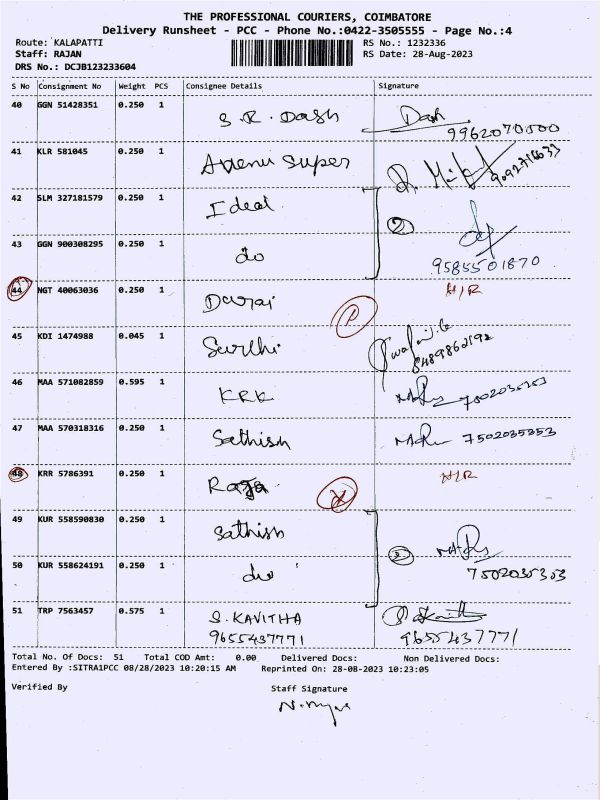 THE PROFESSIONAL COURIERS, COIMBATORE
Delivery Runsheet - PCC - Phone No.:0422-3505555 - Page No.:4
Route: KALAPATTI RS No.: 1232336
Staff: RAJAN RS Date: 28-Aug-2023
DRS No.: DCJB123233604
S No Consignment No Weight PCS Consignee Details Signature
40 GGN 51428351 0.250 1 S.R. Dash Dash
9962070500
41 KLR 581045 0.250 1 Avenu Super
42 SLM 327181579 0.250 1 Ideal 2
43 GGN 900308295 0.250 1 do 9585501870
44 NGT 40063036 0.250 1 Durai H/R
45 KDI 1474988 0.045 1 Surthi 8489862192
46 MAA 571082859 0.595 1 KRK 7502035353
47 MAA 570318316 0.250 1 Sathish 7502035353
48 KRR 5786391 0.250 1 Raja H/R
49 KUR 558590830 0.250 1 Sathish
50 KUR 558624191 0.250 1 do 7502035353
51 TRP 7563457 0.575 1 S. KAVITHA
9655437771 9655437771
Total No. Of Docs: 51 Total COD Amt: 0.00 Delivered Docs: Non Delivered Docs:
Entered By :SITRA1PCC 08/28/2023 10:20:15 AM Reprinted On: 28-08-2023 10:23:05
Verified By Staff Signature